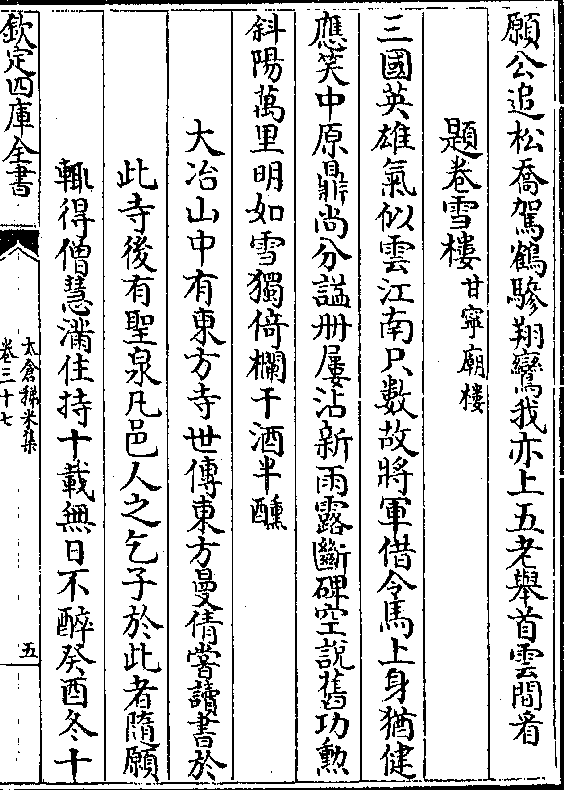 願公追松喬駕鶴驂翔鸞我亦上五老舉首雲間看
題卷雪樓甘寧廟樓
三國英雄氣似雲江南只數故將軍借令馬上身猶健
應笑中原鼎尚分謚册屢沾新雨露斷碑空說舊功勲
斜陽萬里明如雪獨倚欄干酒半醺
大冶山中有東方寺世傳東方曼倩嘗讀書於
此寺後有聖泉凡邑人之乞子於此者隨願
輙得僧慧滿住持十載無日不醉癸酉冬十
欽定四庫全書
太倉稊米集
卷三十七
五